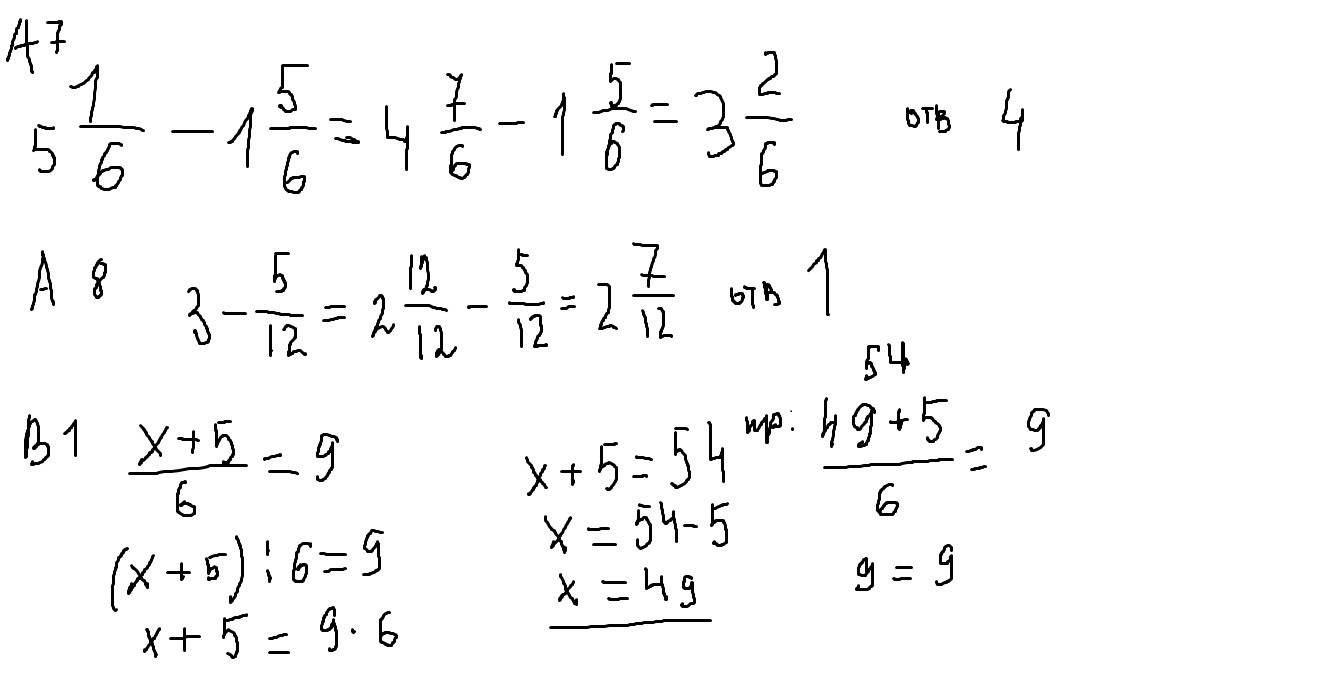 А7
5 1/6 - 1 5/6 = 4 7/6 - 1 5/6 = 3 2/6 отв 4
А 8 3 - 5/12 = 2 12/12 - 5/12 = 2 7/12 отв 1
В1 (x+5)/6 = 9
(x+5):6=9
x+5 = 9·6
x+5=54
x = 54-5
x = 49
пр: 54
(49+5)/6 = 9
9 = 9